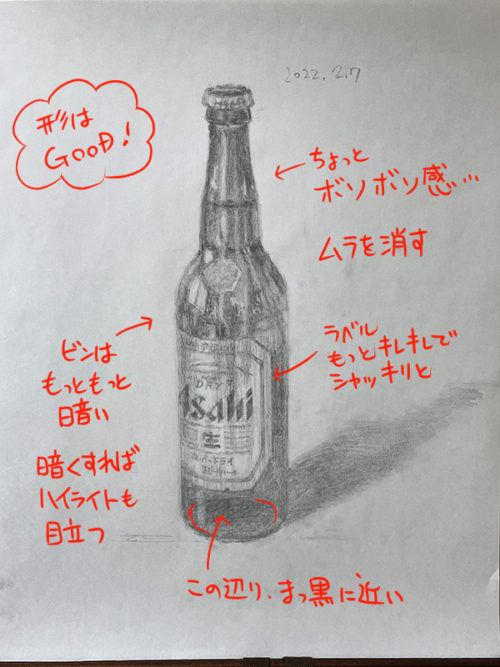 2022.2.7
形は
GOOD!
ちょっと
ボソボソ感…
ムラを消す
ビンは
もっともっと
暗い
暗くすれば
ハイライトも
目立つ
ラベル
もっとキレキレで
シャッキリと
DRAFT
Asahi
生
スーパードライ
この辺り、まっ黒に近い